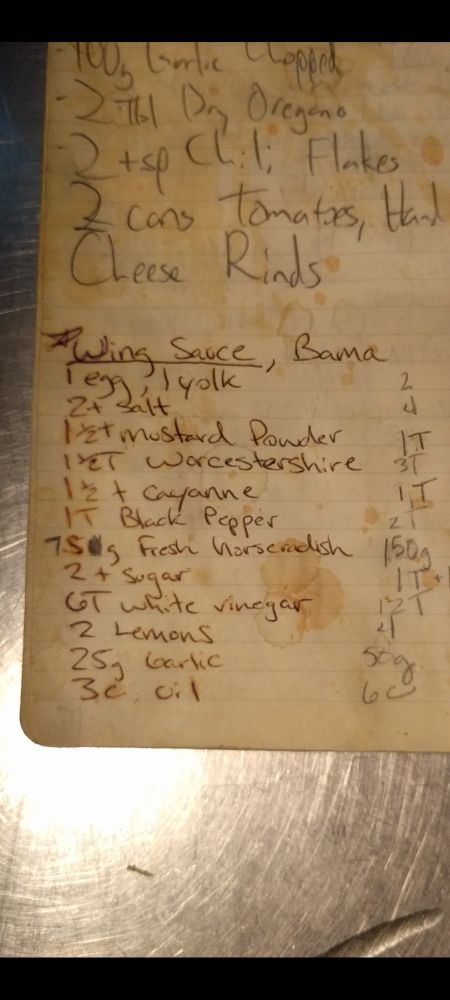 -100g Garlic Chopped
-2 Tbl Dry Oregano
-2 tsp Chili Flakes
2 cans Tomatoes, Hand
Cheese Rinds
*Wing Sauce, Bama
1 egg, 1 yolk 2
2t Salt 4
1½t mustard Powder 1T
1½T Worcestershire 3T
1½ t cayanne 1T
1T Black Pepper 2T
75g Fresh horseradish 150g
2t Sugar 1T+1
6T white vinegar 12T
2 Lemons 4
25g Garlic 50g
3c oil 6c